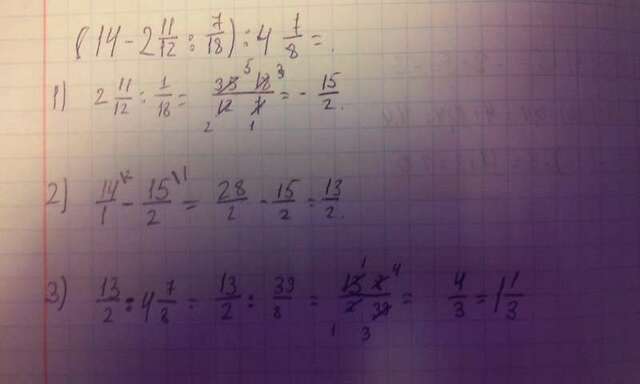 (14 - 2 11/12 : 7/18) : 4 7/8 =
1) 2 11/12 : 1/18 = 35 5 18 3 / 12 2 7 1 = - 15/2.
2) 14/1 - 15/2 \1 = 28/2 - 15/2 = 13/2.
3) 13/2 : 4 7/8 = 13/2 : 39/8 = 13 1 8 4 / 2 1 39 3 = 4/3 = 1 1/3